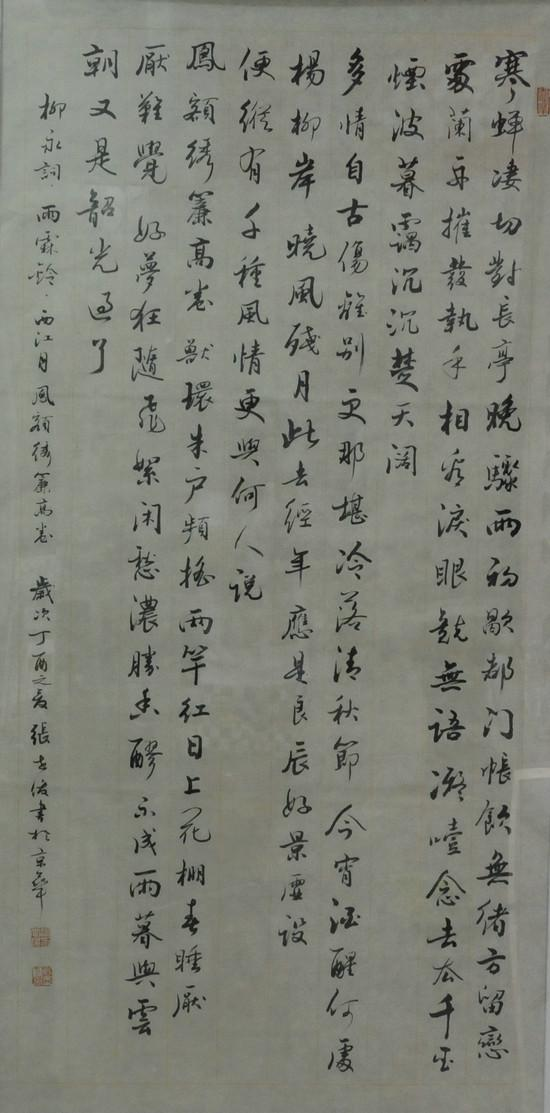 寒蟬凄切對長亭晚驟雨初歇都门帳飲無緒方留戀
處蘭舟摧發執手相看淚眼競無語凝噎念去去千里
煙波暮靄沉沉楚天阔
多情自古傷離別更那堪冷落清秋節今宵酒醒何處
楊柳岸曉風殘月此去經年應是良辰好景虛设
便縱有千種風情更與何人説
鳳額绣簾高卷獸環朱户頻搖兩竿紅日上花棚春睡厭
厭難覺好夢狂隨飛絮闲愁濃勝香醪不成雨暮與雲
朝又是韶光過了
柳永詞雨霖鈴·西江月凤額绣簾高卷歲次丁酉之夏張古俊書於京華